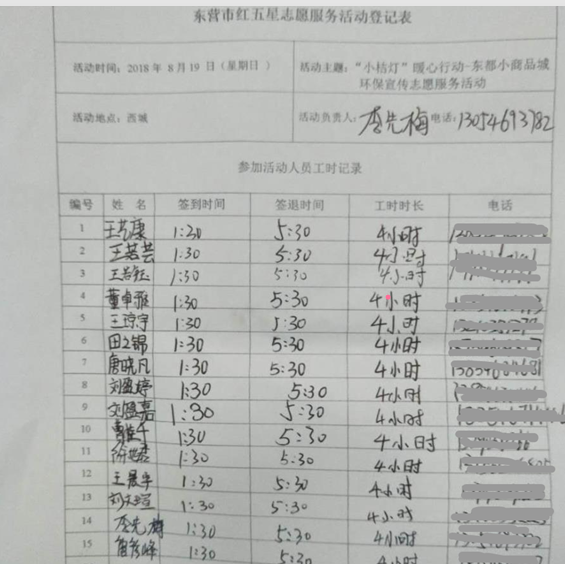 东营市红五星志愿服务活动登记表
活动时间：2018 年 8 月 19 日（星期日 ） 活动主题：“小桔灯”暖心行动-东都小商品城
环保宣传志愿服务活动
活动地点：西城 活动负责人：李先梅 电话：13054693782
参加活动人员工时记录
编号 姓 名 签到时间 签退时间 工时时长 电话
1 王艺康 1:30 5:30 4小时
2 王若芸 1:30 5:30 4小时
3 王若钰 1:30 5:30 4小时
4 董卓雅 1:30 5:30 4小时
5 王琼宇 1:30 5:30 4小时
6 田文锦 1:30 5:30 4小时
7 唐晓凡 1:30 5:30 4小时
8 刘盈婷 1:30 5:30 4小时
9 刘盈嘉 1:30 5:30 4小时
10 1:30 5:30 4小时
11 1:30 5:30 4小时
12 王晨宇 1:30 5:30 4小时
13 1:30 5:30 4小时
14 李先梅 1:30 5:30 4小时
15 1:30 5:30 4小时